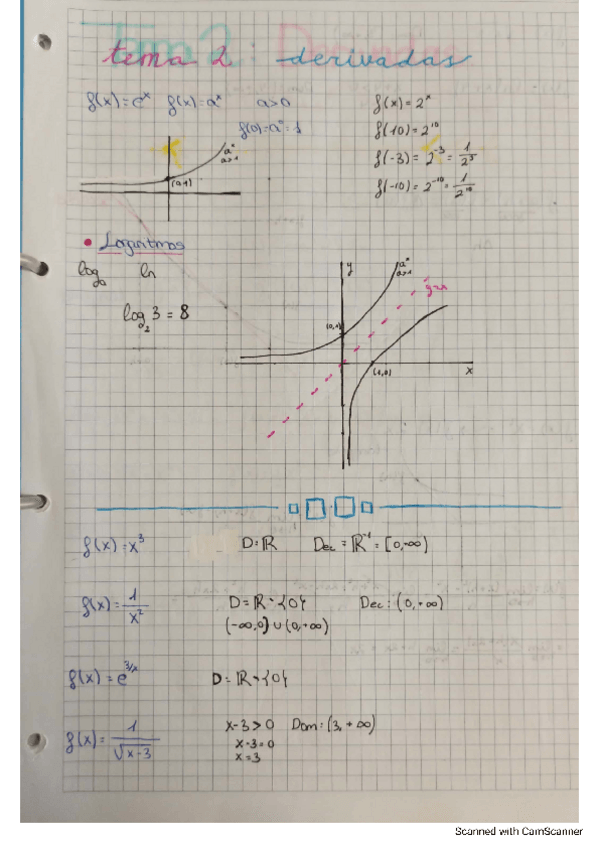 tema 2 derivadas
f(x)=eˣ f(x)=aˣ a>0
f(0)=a⁰=1
aˣ
a>1
(0,1)
f(x)=2ˣ
f(10)=2¹⁰
f(-3)=2⁻³=1/2³
f(-10)=2⁻¹⁰=1/2¹⁰
• Logaritmos
logₐ ln
log₂3=8
y
aˣ
a>1
y=x
(0,1)
(1,0)
x
f(x)=x³ D=ℝ
f(x)=1/x² D=ℝ-{0} Dec:(0,+∞)
(-∞,0)∪(0,+∞)
f(x)=e^(3/x) D=ℝ-{0}
f(x)=1/√(x-3) x-3>0 Dom:(3,+∞)
x-3=0
x=3
Scanned with CamScanner